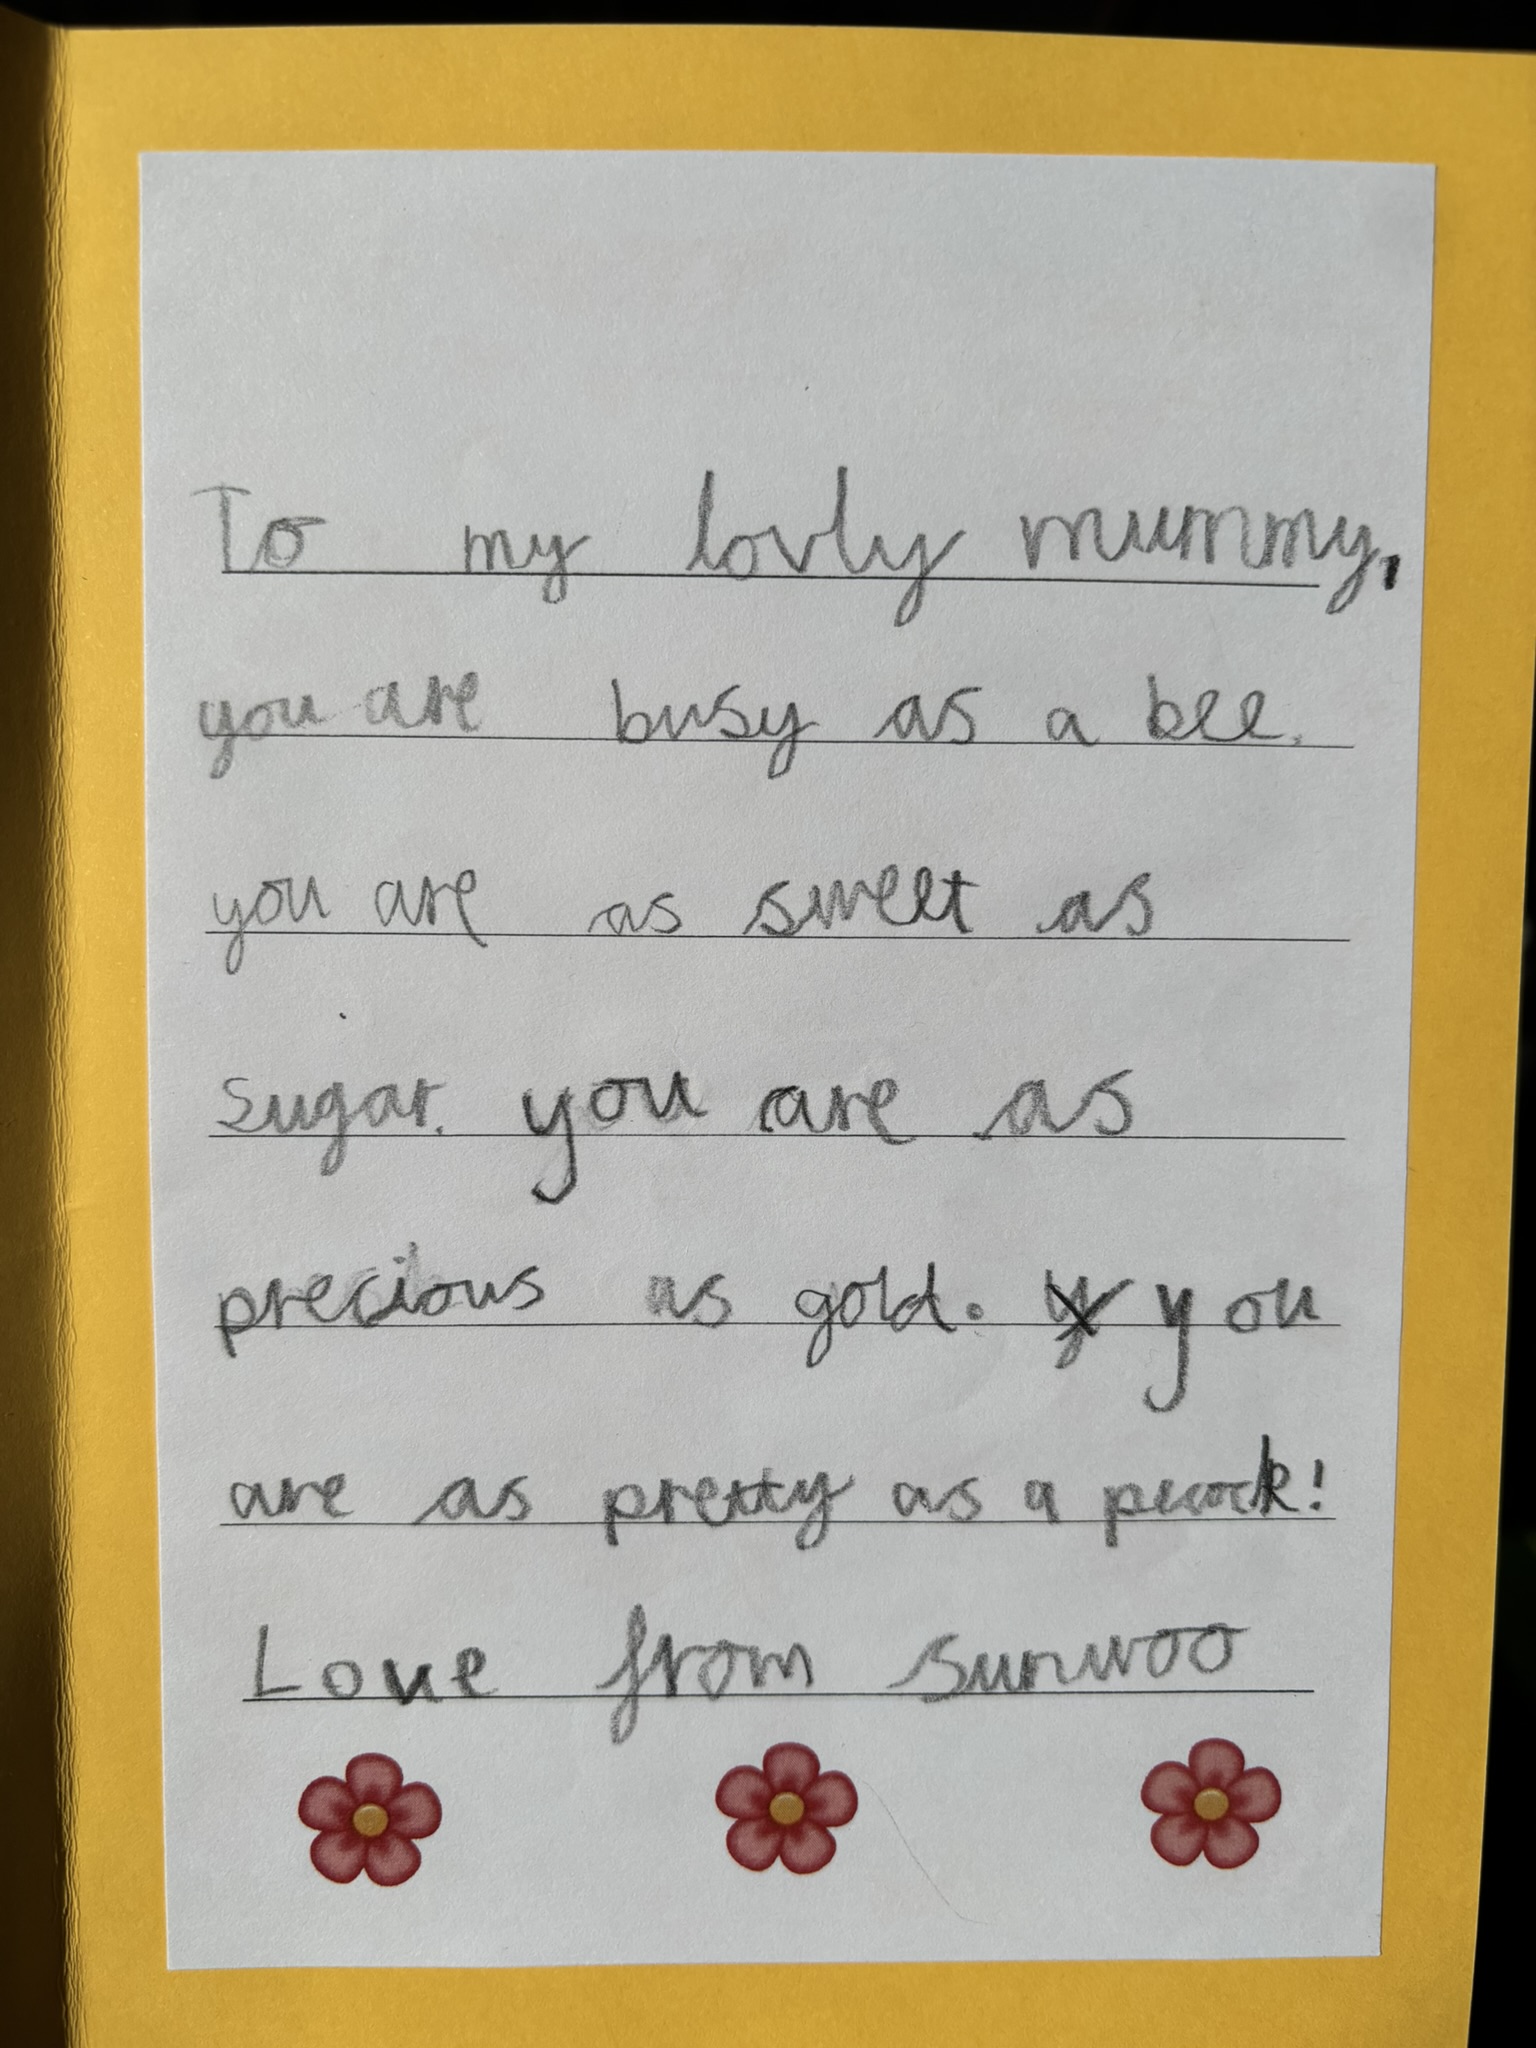 To my lovly mummy,
you are busy as a bee.
you are as sweet as
sugar. you are as
precious as gold. y you
are as pretty as a pecock!
Love from sunwoo